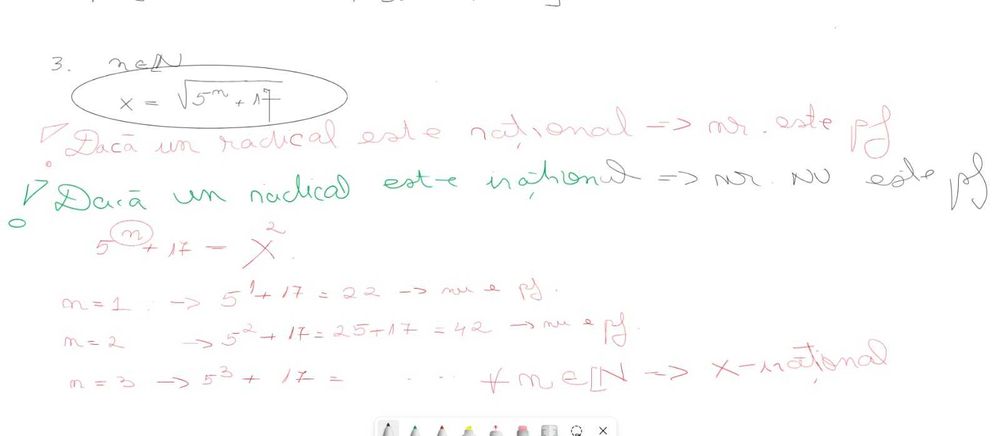 3. n∈ℕ
x = √5ⁿ + 17
Dacă un radical este rațional => nr. este pf
Dacă un radical este irațional => nr. NU este pf
5ⁿ + 17 = x².
n = 1 -> 5¹ + 17 = 22 -> nu e pf.
n = 2 -> 5² + 17 = 25 + 17 = 42 -> nu e pf.
n = 3 -> 5³ + 17 = . . . ∀ n ∈ ℕ => x-irațional